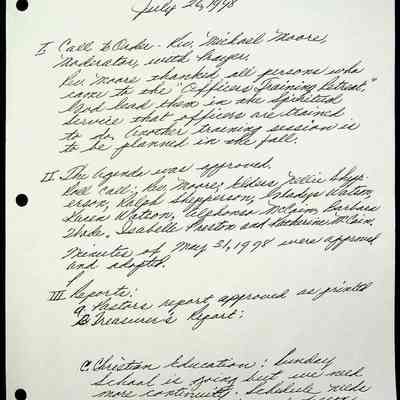 July 26, 1998
I. Call to Order - Rev. Michael Moore,
Moderator, with Prayer.
Rev. Moore thanked all persons who
came to the "Officers Training Retreat."
God lead them in the Spiritual
service that officers are trained
to do. Another training session is
to be planned in the fall.
II. The agenda was approved.
Roll Call: Rev. Moore; Elders Nellie Shepp-
erson, Ralph Shepperson, Gladys Watson,
Karen Watson, Alphonso McCain, Barbara
Wade, Isabelle Preston and Katherine McCain.
Minutes of May 31, 1998 were approved
and adopted.
III Reports:
a. Pastors report approved as printed
B. Treasurer's Report:
C. Christian Education: Sunday
School is going but we need
more continuity. Schedule